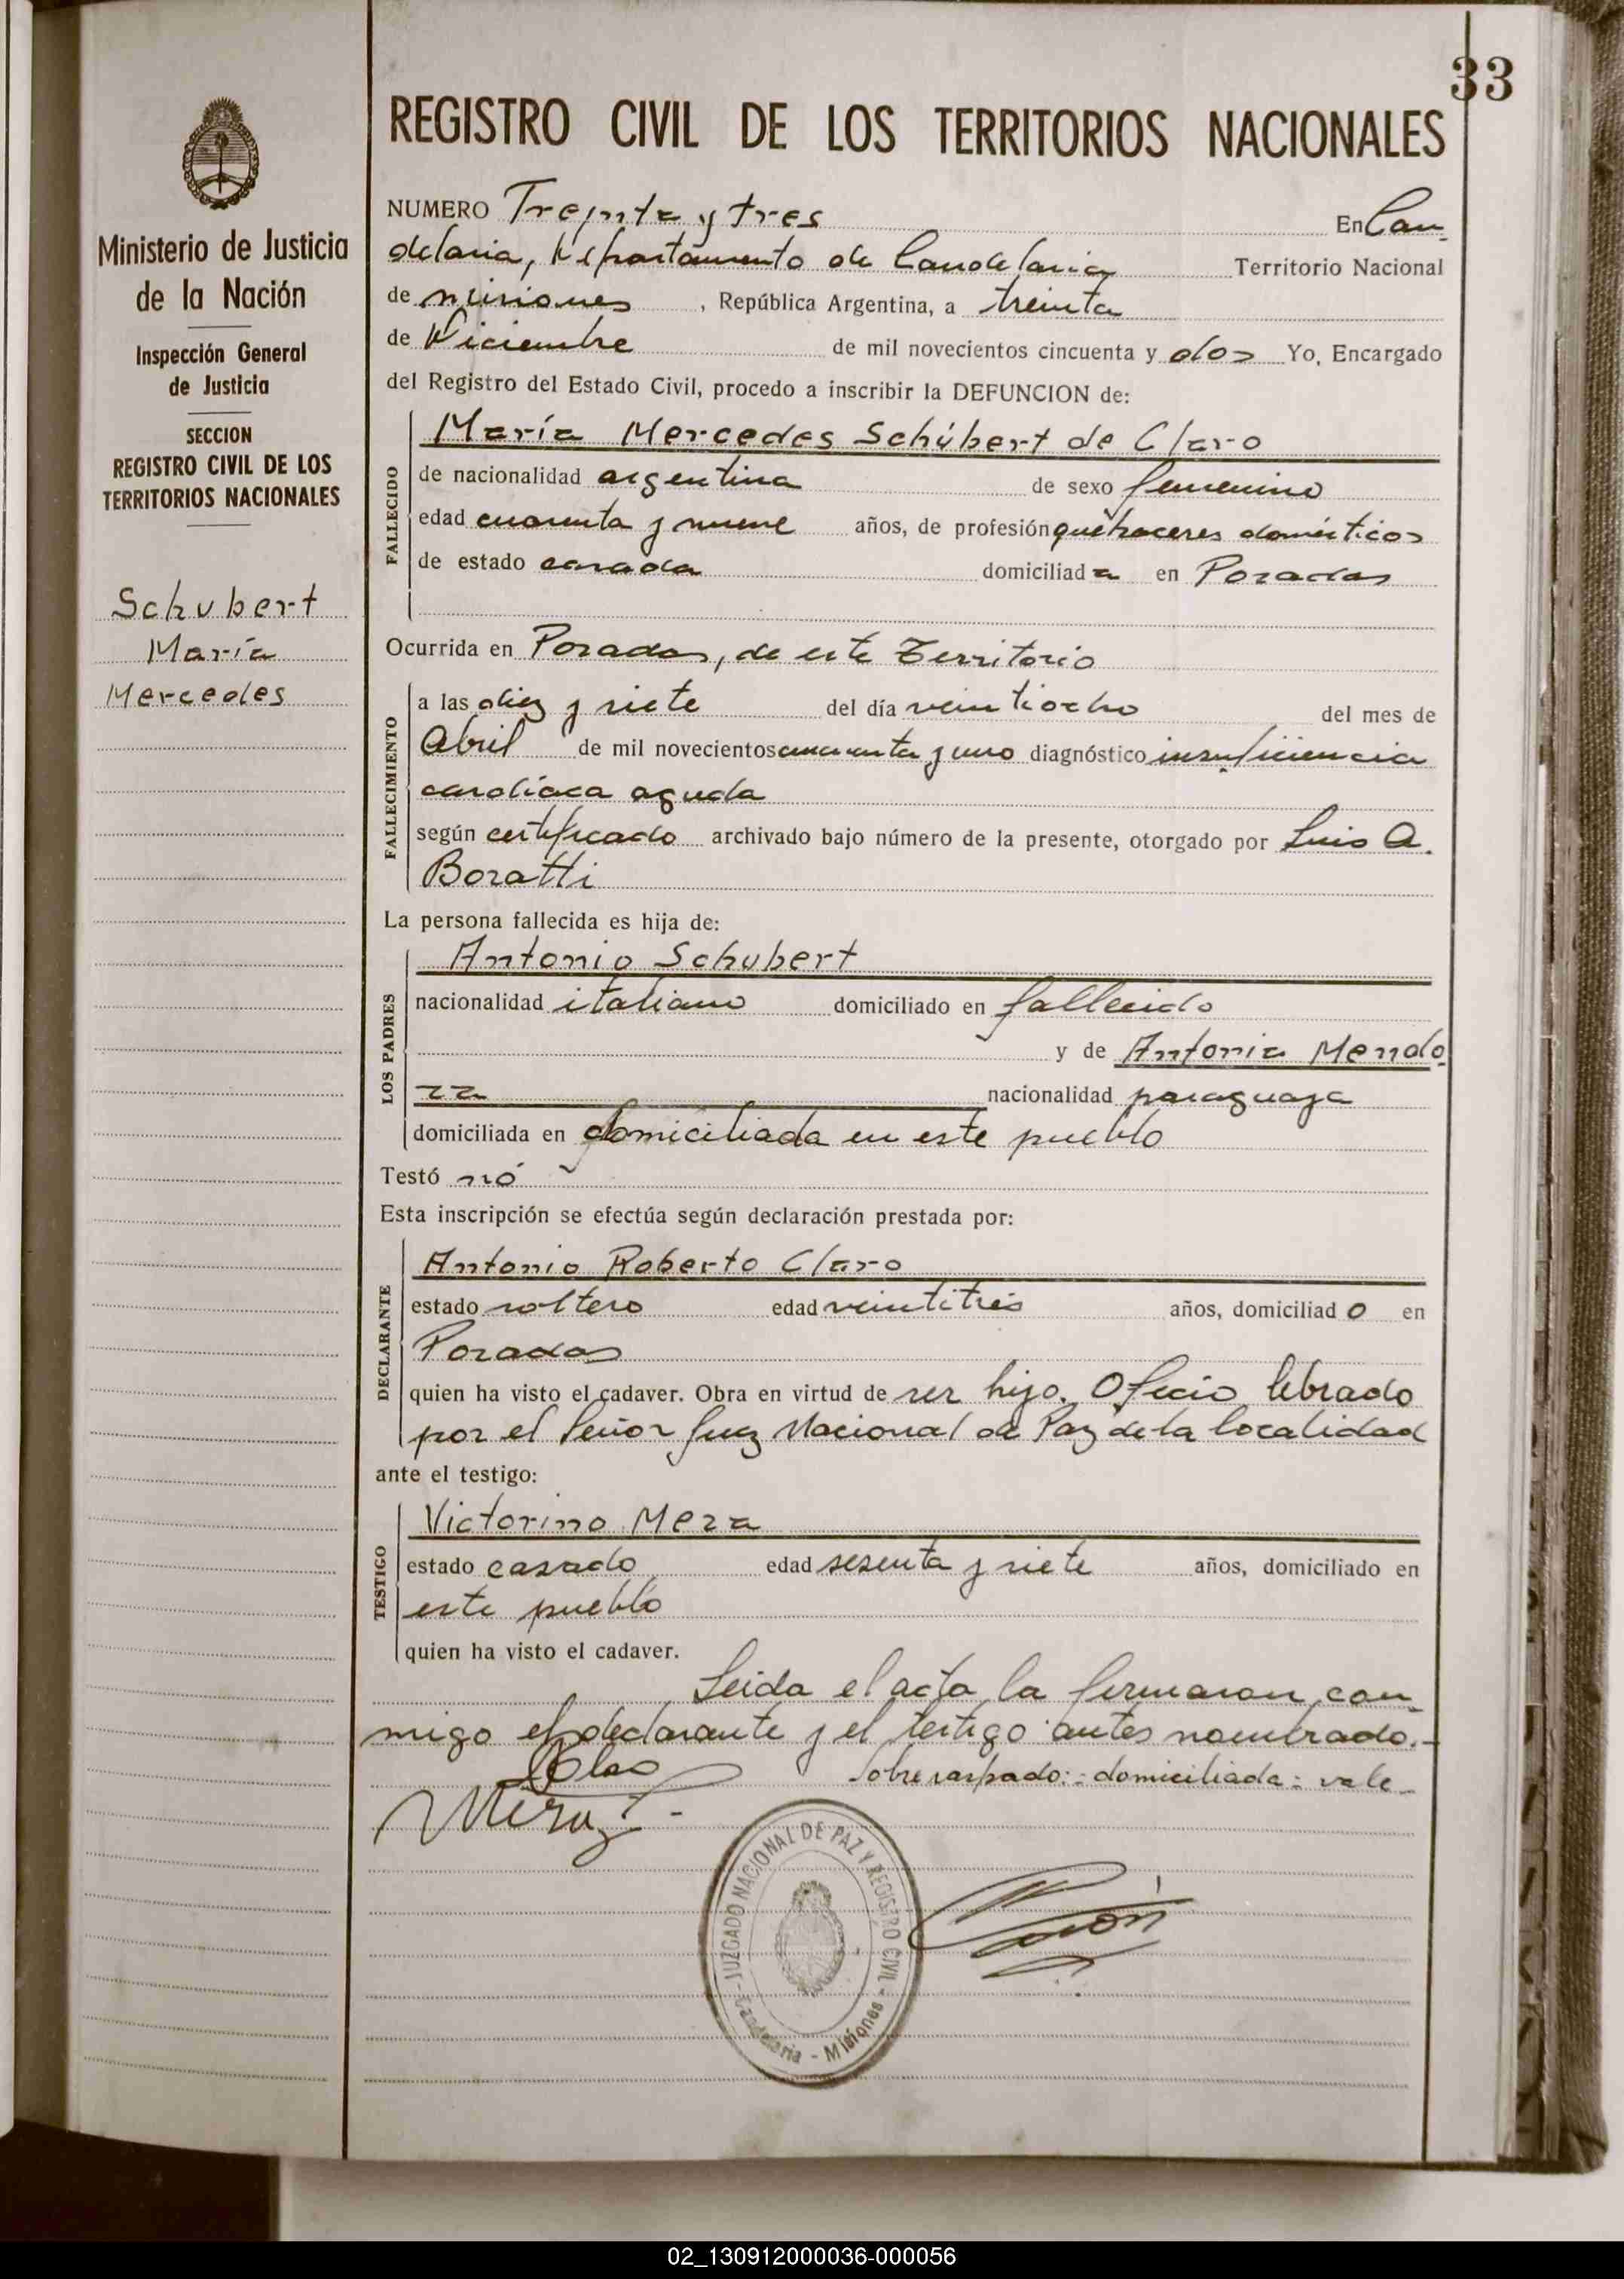 33
REGISTRO CIVIL DE LOS TERRITORIOS NACIONALES
Ministerio de Justicia
de la Nación
Inspección General
de Justicia
SECCION
REGISTRO CIVIL DE LOS
TERRITORIOS NACIONALES
Schubert
María
Mercedes
NUMERO Treinta y tres En Can-
delaria, Departamento de Candelaria Territorio Nacional
de misiones, República Argentina, a treinta
de Diciembre de mil novecientos cincuenta y dos Yo, Encargado
del Registro del Estado Civil, procedo a inscribir la DEFUNCION de:
FALLECIDO
María Mercedes Schúbert de Claro
de nacionalidad argentina de sexo femenino
edad cuarenta y nueve años, de profesión quehaceres domésticos
de estado casada domiciliada en Posadas
Ocurrida en Posadas, de este Territorio
FALLECIMIENTO
a las diez y siete del día veintiocho del mes de
Abril de mil novecientos cincuenta y uno diagnóstico insuficiencia
cardíaca aguda
según certificado archivado bajo número de la presente, otorgado por Luis A.
Boratti
La persona fallecida es hija de:
LOS PADRES
Antonio Schubert
nacionalidad italiano domiciliado en fallecido
y de Antonia Mendo-
za nacionalidad paraguaya
domiciliada en domiciliada en este pueblo
Testó nó
Esta inscripción se efectúa según declaración prestada por:
DECLARANTE
Antonio Roberto Claro
estado soltero edad veintitrés años, domiciliado en
Posadas
quien ha visto el cadaver. Obra en virtud de ser hijo. Oficio librado
por el Señor Juez Nacional de Paz de la localidad
ante el testigo:
TESTIGO
Victorino Meza
estado casado edad sesenta y siete años, domiciliado en
este pueblo
quien ha visto el cadaver.
Leida el acta la firmaron con-
migo el declarante y el testigo antes nombrado.-
Sobre raspado:- domiciliada: vale-
JUZGADO NACIONAL DE PAZ Y REGISTRO CIVIL
Candelaria - Misiones
02_130912000036-000056